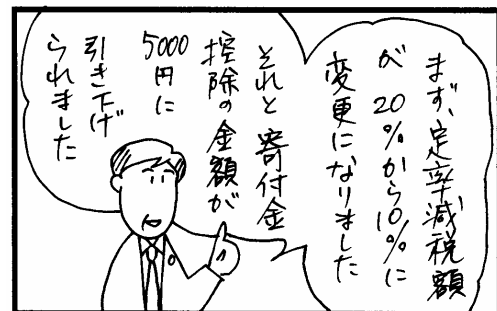 まず、定率減税額
が20%から10%に
変更になりました
それと寄付金
控除の金額が
5000
円に
引き下げ
られました